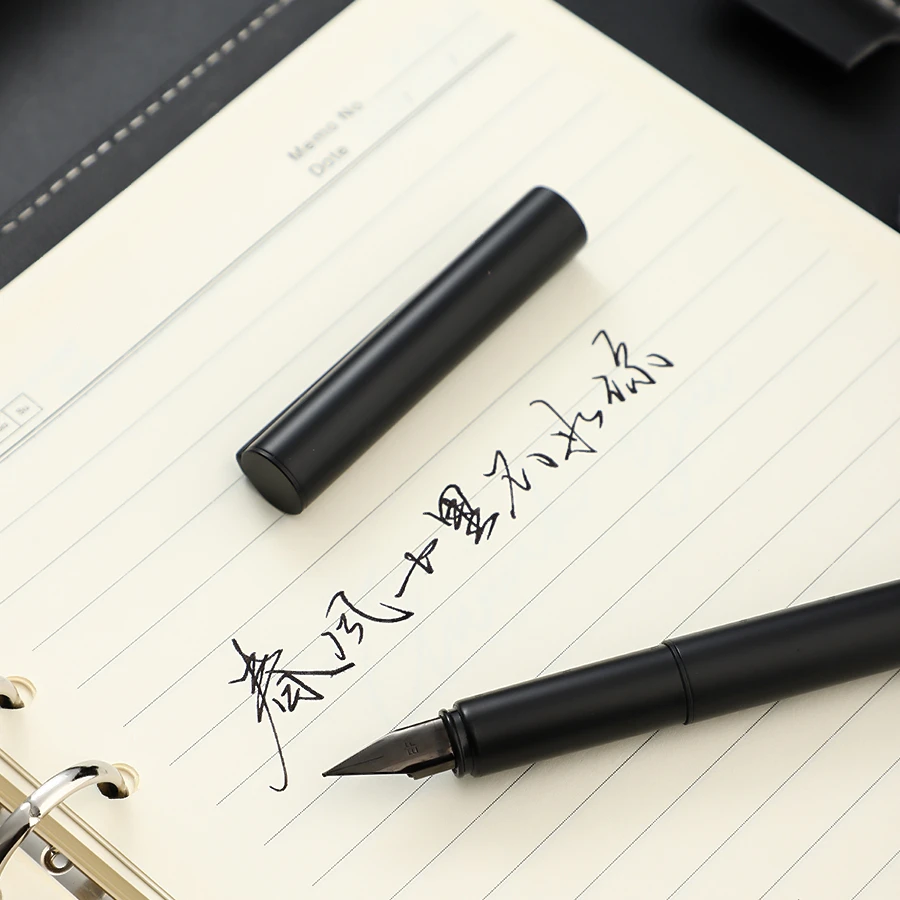 Memo No
Date
春风十里不如你